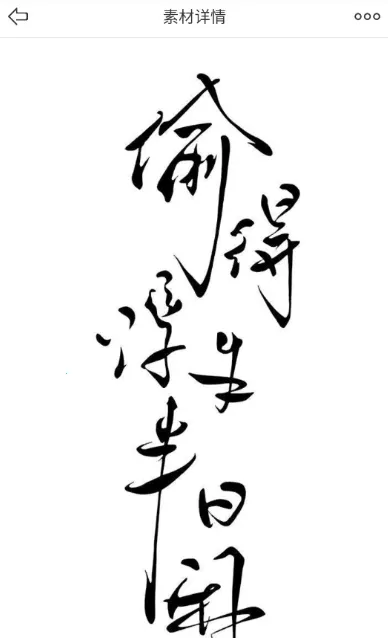 素材详情
偷得浮生半日闲